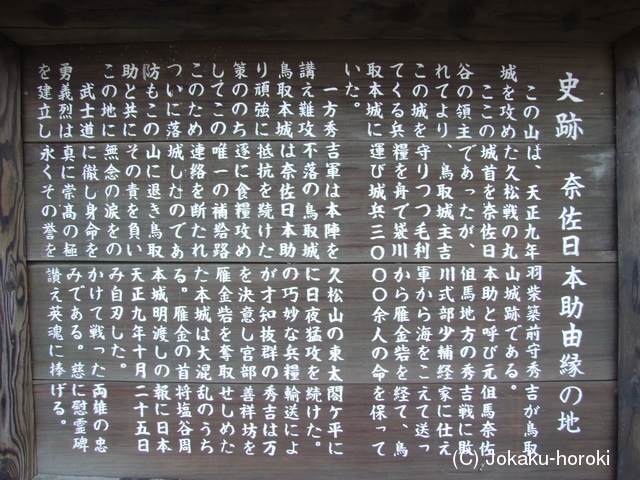 史跡 奈佐日本助由縁の地
この山は、天正九年羽柴筑前守秀吉が鳥取
城を攻めた久松戦の丸山城跡である。
ここの城首を奈佐日本助と呼び元但馬奈佐
谷の領主であったが、但馬地方の秀吉戦に敗
れてより、鳥取城主吉川式部少輔経家に仕え
この城を守りつつ毛利軍から海をこえて送っ
てくる兵糧を舟で袋川から雁金砦を経て、鳥
取本城に運び城兵三〇〇〇余人の命を保って
いた。
一方秀吉軍は本陣を久松山の東太閤ケ平に
講え難攻不落の鳥取城に日夜猛攻を続けた。
鳥取本城は奈佐日本助の巧妙な兵糧輸送によ
り頑強に抵抗を続けたが才知抜群の秀吉は万
策ののち遂に食糧攻めを決意し宮部善祥坊を
してこの唯一の補給路雁金砦を奪取せしめた
このため連絡を断たれた本城は大混乱のうち
ついに落城したのである。雁金の首将塩谷周
防もこの山に退き鳥取本城明渡しの報に日本
助と共にその責を負い天正九年十月二十五日
この地に無念の涙をのみ自刃した。
武士道に徹し身命をかけて戦った両雄の忠
勇義烈は真に崇高の極みである。茲に慰霊碑
を建立し永くその誉を讃え英魂に捧げる。
(C) Jokaku-horoki